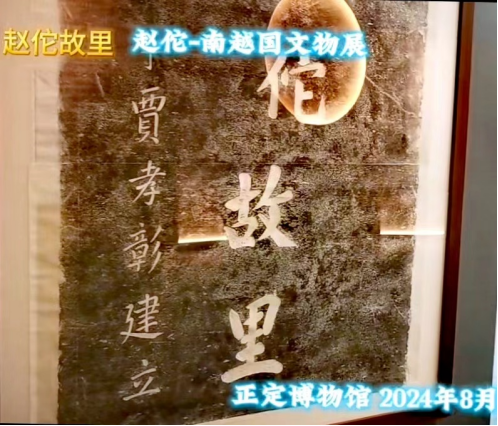 赵佗故里
赵佗-南越国文物展
佗故里
贾孝彰建立
正定博物馆 2024年8月